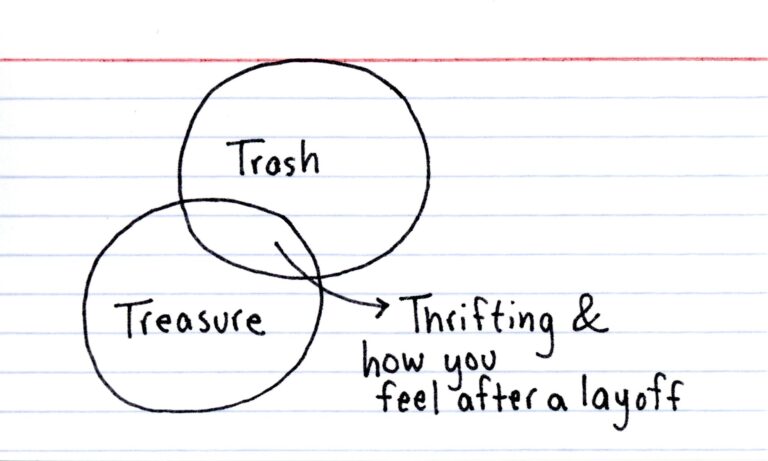 Trash
Treasure
Thrifting &
how you
feel after a layoff